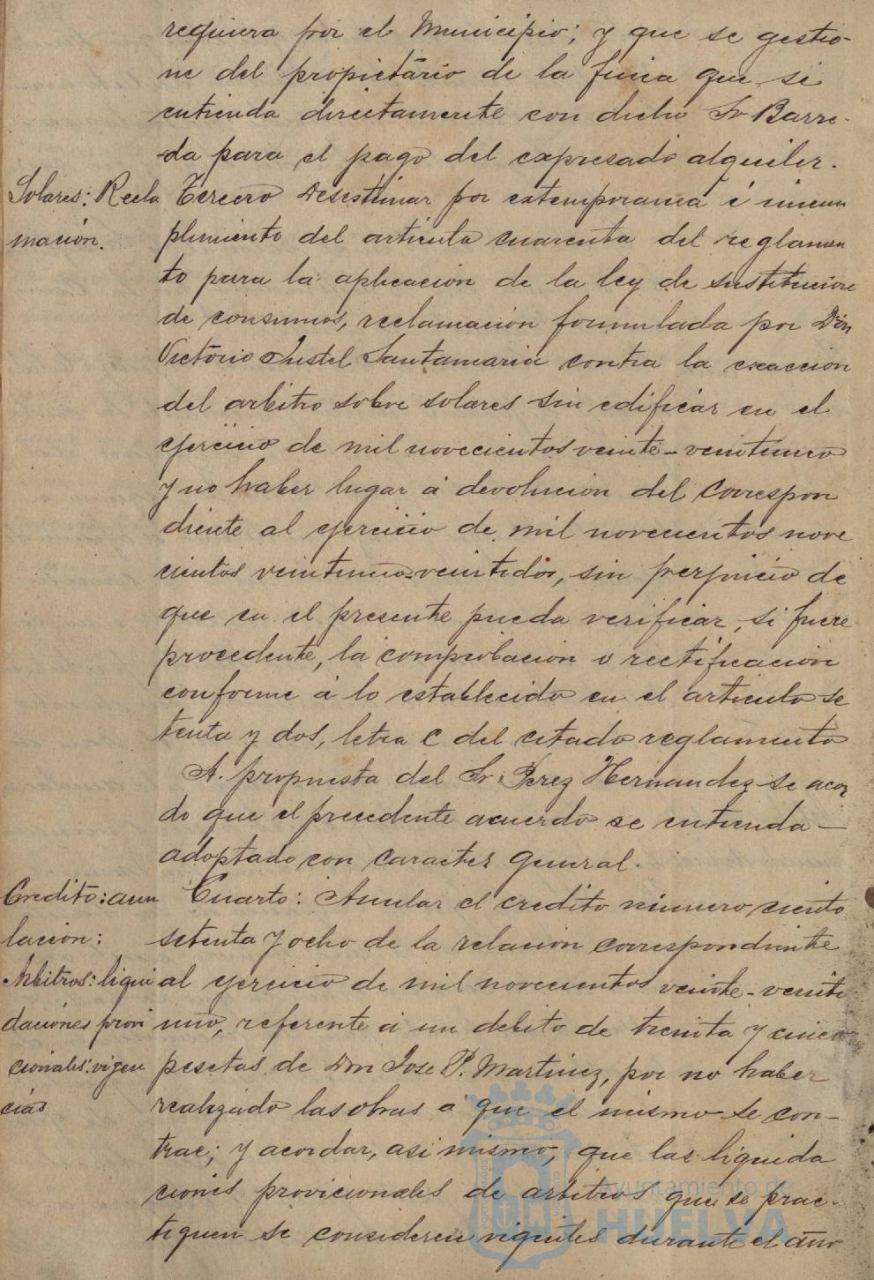 requiera por el Municipio; y que se gestio-
ne del propietário de la finca que se
entienda directamente con dicho Sr Barre-
da para el pago del expresado alquiler.
Solares: Recla
mación.
Tercero Desestimar por extemporania é incum
plimiento del artículo cuarenta del reglamen
to para la aplicacion de la ley de sustitucione
de consumos, reclamacion formulada por Don
Victorio Justel Santamaria contra la exaccion
del arbitrio sobre solares sin edificar en el
ejercicio de mil novecientos veinte-veintiuno
y no haber lugar á devolucion del correspon
diente al ejercicio de mil novecientos nove
cientos veintiuno-veintidos, sin perjuicio de
que en el presente pueda verificar, si fuere
procedente, la comprobacion o rectificacion
conforme á lo establecido en el articulo se
tenta y dos, letra C del citado reglamento
A propuesta del Sr Perez Hernandez se acor
do que el precedente acuerdo se entienda—
adoptado con caracter general.
Credito: anu
lacion:
Arbitros: liqui
daciónes provi
cionales: vigen
cias
Cuarto: Anular el credito número ciento
setenta y ocho de la relacion correspondiente
al ejercicio de mil novecientos veinte-veinti
uno, referente á un debito de treinta y cinco
pesetas de Don Jose P. Martinez, por no haber
realizado las obras a que el mismo se con-
trae; y acordar, asi mismo, que las liquida
ciones provicionales de arbitrios que se prac-
tiquen se consideren vigentes durante el año
Ayuntamiento de
HUELVA